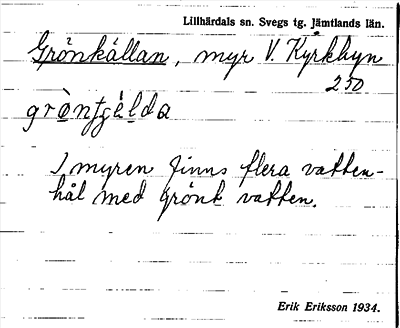 Lillhärdals sn. Svegs tg. Jämtlands län.
Grönkällan, myr V. Kyrkbyn
250
I myren finns flera vatten-
hål med grönt vatten.
Erik Eriksson 1934.